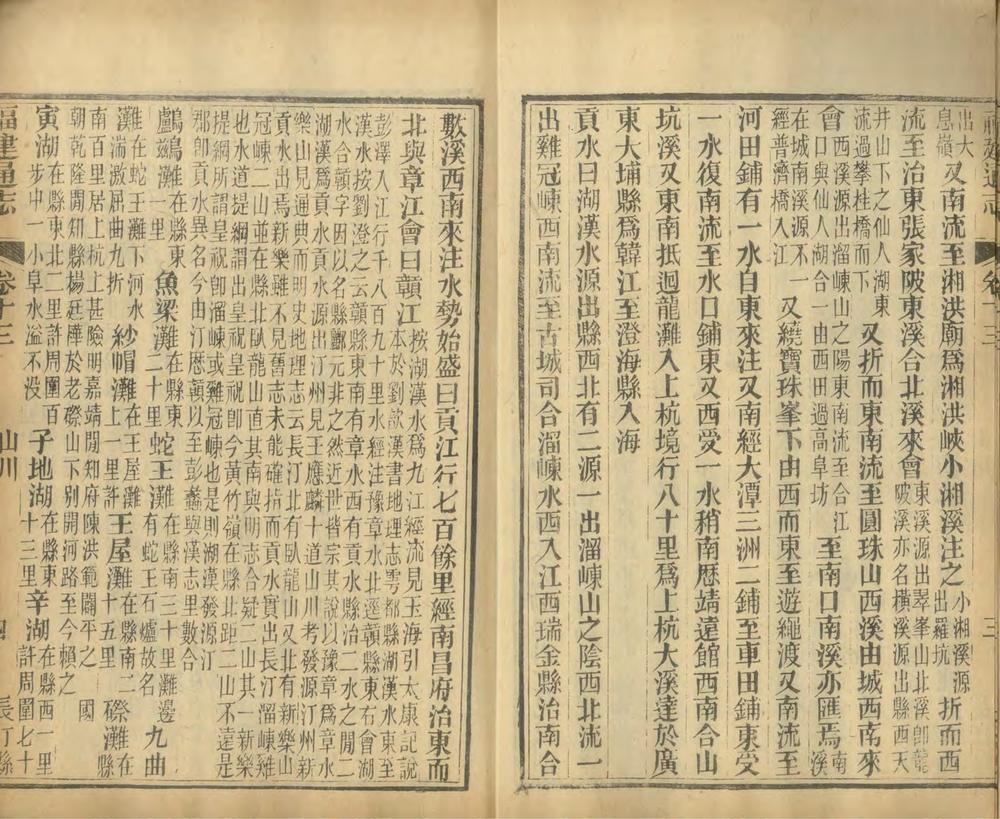 出大
息嶺
又南流至湘洪廟爲湘洪峽小湘溪注之
小湘溪源
出羅坑
折而西
流至治東張家陂東溪合北溪來會
東溪源出翠峯山北溪卽龍
陂溪亦名橫溪源出縣西天
井山下之仙人湖東
流過攀桂橋而下
又折而東南流至圓珠山西溪由城西南來
會
西溪源出溜崠山之陽東南流至合江
口與仙人湖合一由西田過高阜坊
至南口南溪亦匯焉
南
溪
在城南溪源不一
經普濟橋入江
又繞寶珠峯下由西而東至遊繩渡又南流至
河田鋪有一水自東來注又南經大潭三洲二鋪至車田鋪東受
一水復南流至水口鋪東又西受一水稍南歷靖遠館西南合山
坑溪又東南抵迥龍灘入上杭境行八十里爲上杭大溪達於廣
東大埔縣爲韓江至澄海縣入海
貢水曰湖漢水源出縣西北有二源一出溜崠山之陰西北流一
出雞冠崠西南流至古城司合溜崠水西入江西瑞金縣治南合
數溪西南來注水勢始盛曰貢江行七百餘里經南昌府治東而
北與章江會曰贛江
按湖漢水爲九江經流見玉海引太康記說
本於劉歆漢書地理志雩都縣湖漢水東至
彭澤入江行千八百九十里水經注豫章水北逕贛縣東右會湖
漢水按劉澄之云贛縣東南有章水西有貢水縣治二水之閒二
水合贛字因以名縣酈元非之然近世皆宗其說以豫章爲章水
湖漢爲貢水貢水源出汀州見王應麟十道山川考發源汀州新
樂山見通典而明史地理志云長汀北有臥龍山又北有新樂山
貢水出焉新樂雖不見舊志未能確指而貢水實出長汀溜崠雞
冠崠二山並在縣北臥龍山直其南與明志合疑二山其一新樂
也水道提綱謂出皇祝皇祝卽今黃竹嶺在縣北距二山不遠是
提綱所謂皇祝卽溜崠或雞冠崠也是則湖漢發源汀
郡卽貢水異名今由汀歷贛以至彭蠡與漢志里數合
鸕鷀灘
在縣東
一里
魚梁灘
在縣東
二十里
蛇王灘
在縣南三十里灘邊
有蛇王石爐故名
九曲
灘
在蛇王灘下河水
湍激屈曲九折
紗帽灘
在王屋灘
上一里許
王屋灘
在縣南二
百里
磜灘
在
縣
南百里居上杭上甚險明嘉靖閒知府陳洪範闢平之
朝乾隆閒知縣楊廷樺於老磜山下別開河路至今賴之
國
寅湖
在縣東北二里許周圍百
步中一小阜水溢不没
子地湖
在縣東
十三里
辛湖
在縣西一里
許周圍七十
福建通志
卷十三
山川
四
長汀縣
福建通志
卷十三
三